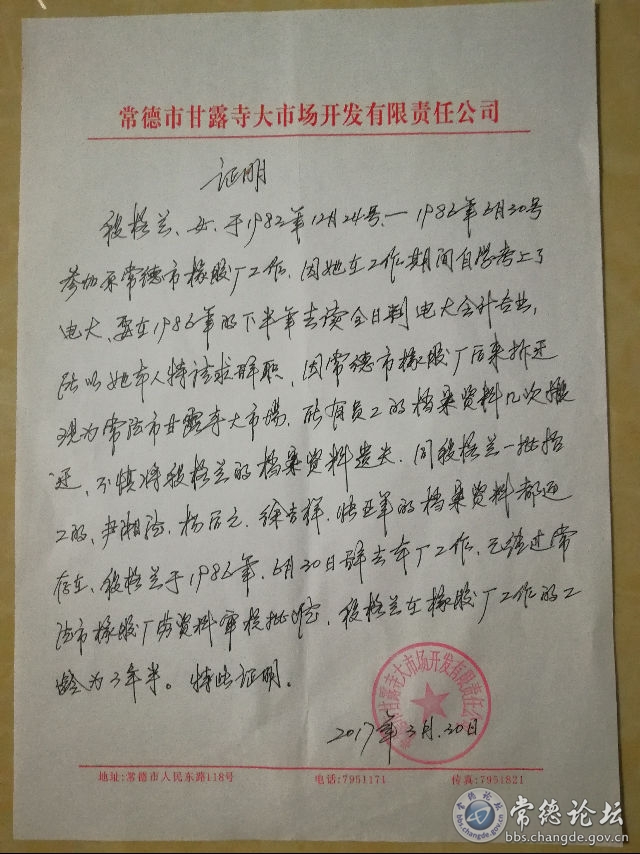 常德市甘露寺大市场开发有限责任公司
证明
段格兰、女、于1982年12月24号、—1986年6月30号
参加原常德市橡胶厂工作、因她在工作期间自学考上了
电大、要在1986年的下半年去读全日制电大会计专业,
所以她本人特请求辞职、因常德市橡胶厂后来拆迁
现为常德市甘露寺大市场、所有员工的档案资料几次搬
迁、不慎将段格兰的档案资料遗失、同段格兰一批招
工的、尹湘、杨、徐吉祥、亚军的档案资料都还
存在、段格兰于1986年、6月30日辞去本厂工作、已经过常
德市橡胶厂劳资科审核批、段格兰在橡胶厂工作的工
龄为3年半。特此证明。
2017年3月30日
甘露寺大市场开发有限责任公司
地址:常德市人民东路118号 电话:7951171 传真:7951821
常德论坛
bbs.changde.gov.cn